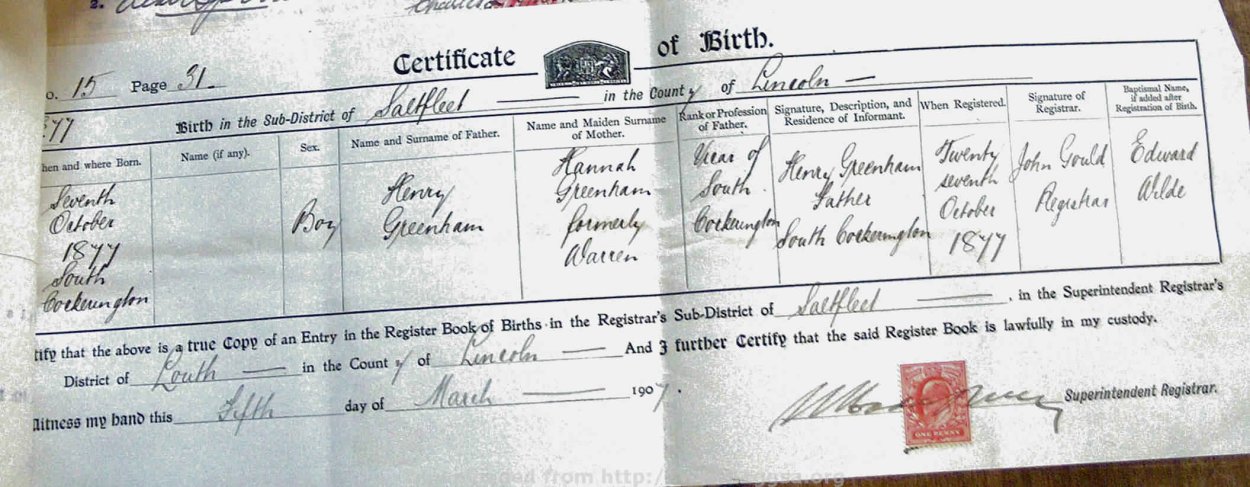 2.
Certificate of Birth.
o. 15 Page 31.
Birth in the Sub-District of Saltfleet in the County of Lincoln
77
hen and where Born.
Name (if any).
Sex.
Name and Surname of Father.
Name and Maiden Surname
of Mother.
Rank or Profession
of Father.
Signature, Description, and
Residence of Informant.
When Registered.
Signature of
Registrar.
Baptismal Name,
if added after
Registration of Birth.
Seventh
October
1877
South
Cockerington
Boy
Henry
Greenham
Hannah
Greenham
formerly
Warren
Vicar of
South
Cockerington
Henry Greenham
Father
South Cockerington
Twenty
seventh
October
1877
John Gould
Registrar
Edward
Wilde
tify that the above is a true Copy of an Entry in the Register Book of Births in the Registrar's Sub-District of Saltfleet, in the Superintendent Registrar's
District of Louth in the County of Lincoln And I further Certify that the said Register Book is lawfully in my custody.
Witness my hand this Fifth day of March 1907.
Superintendent Registrar.
ONE PENNY
from http://
.org